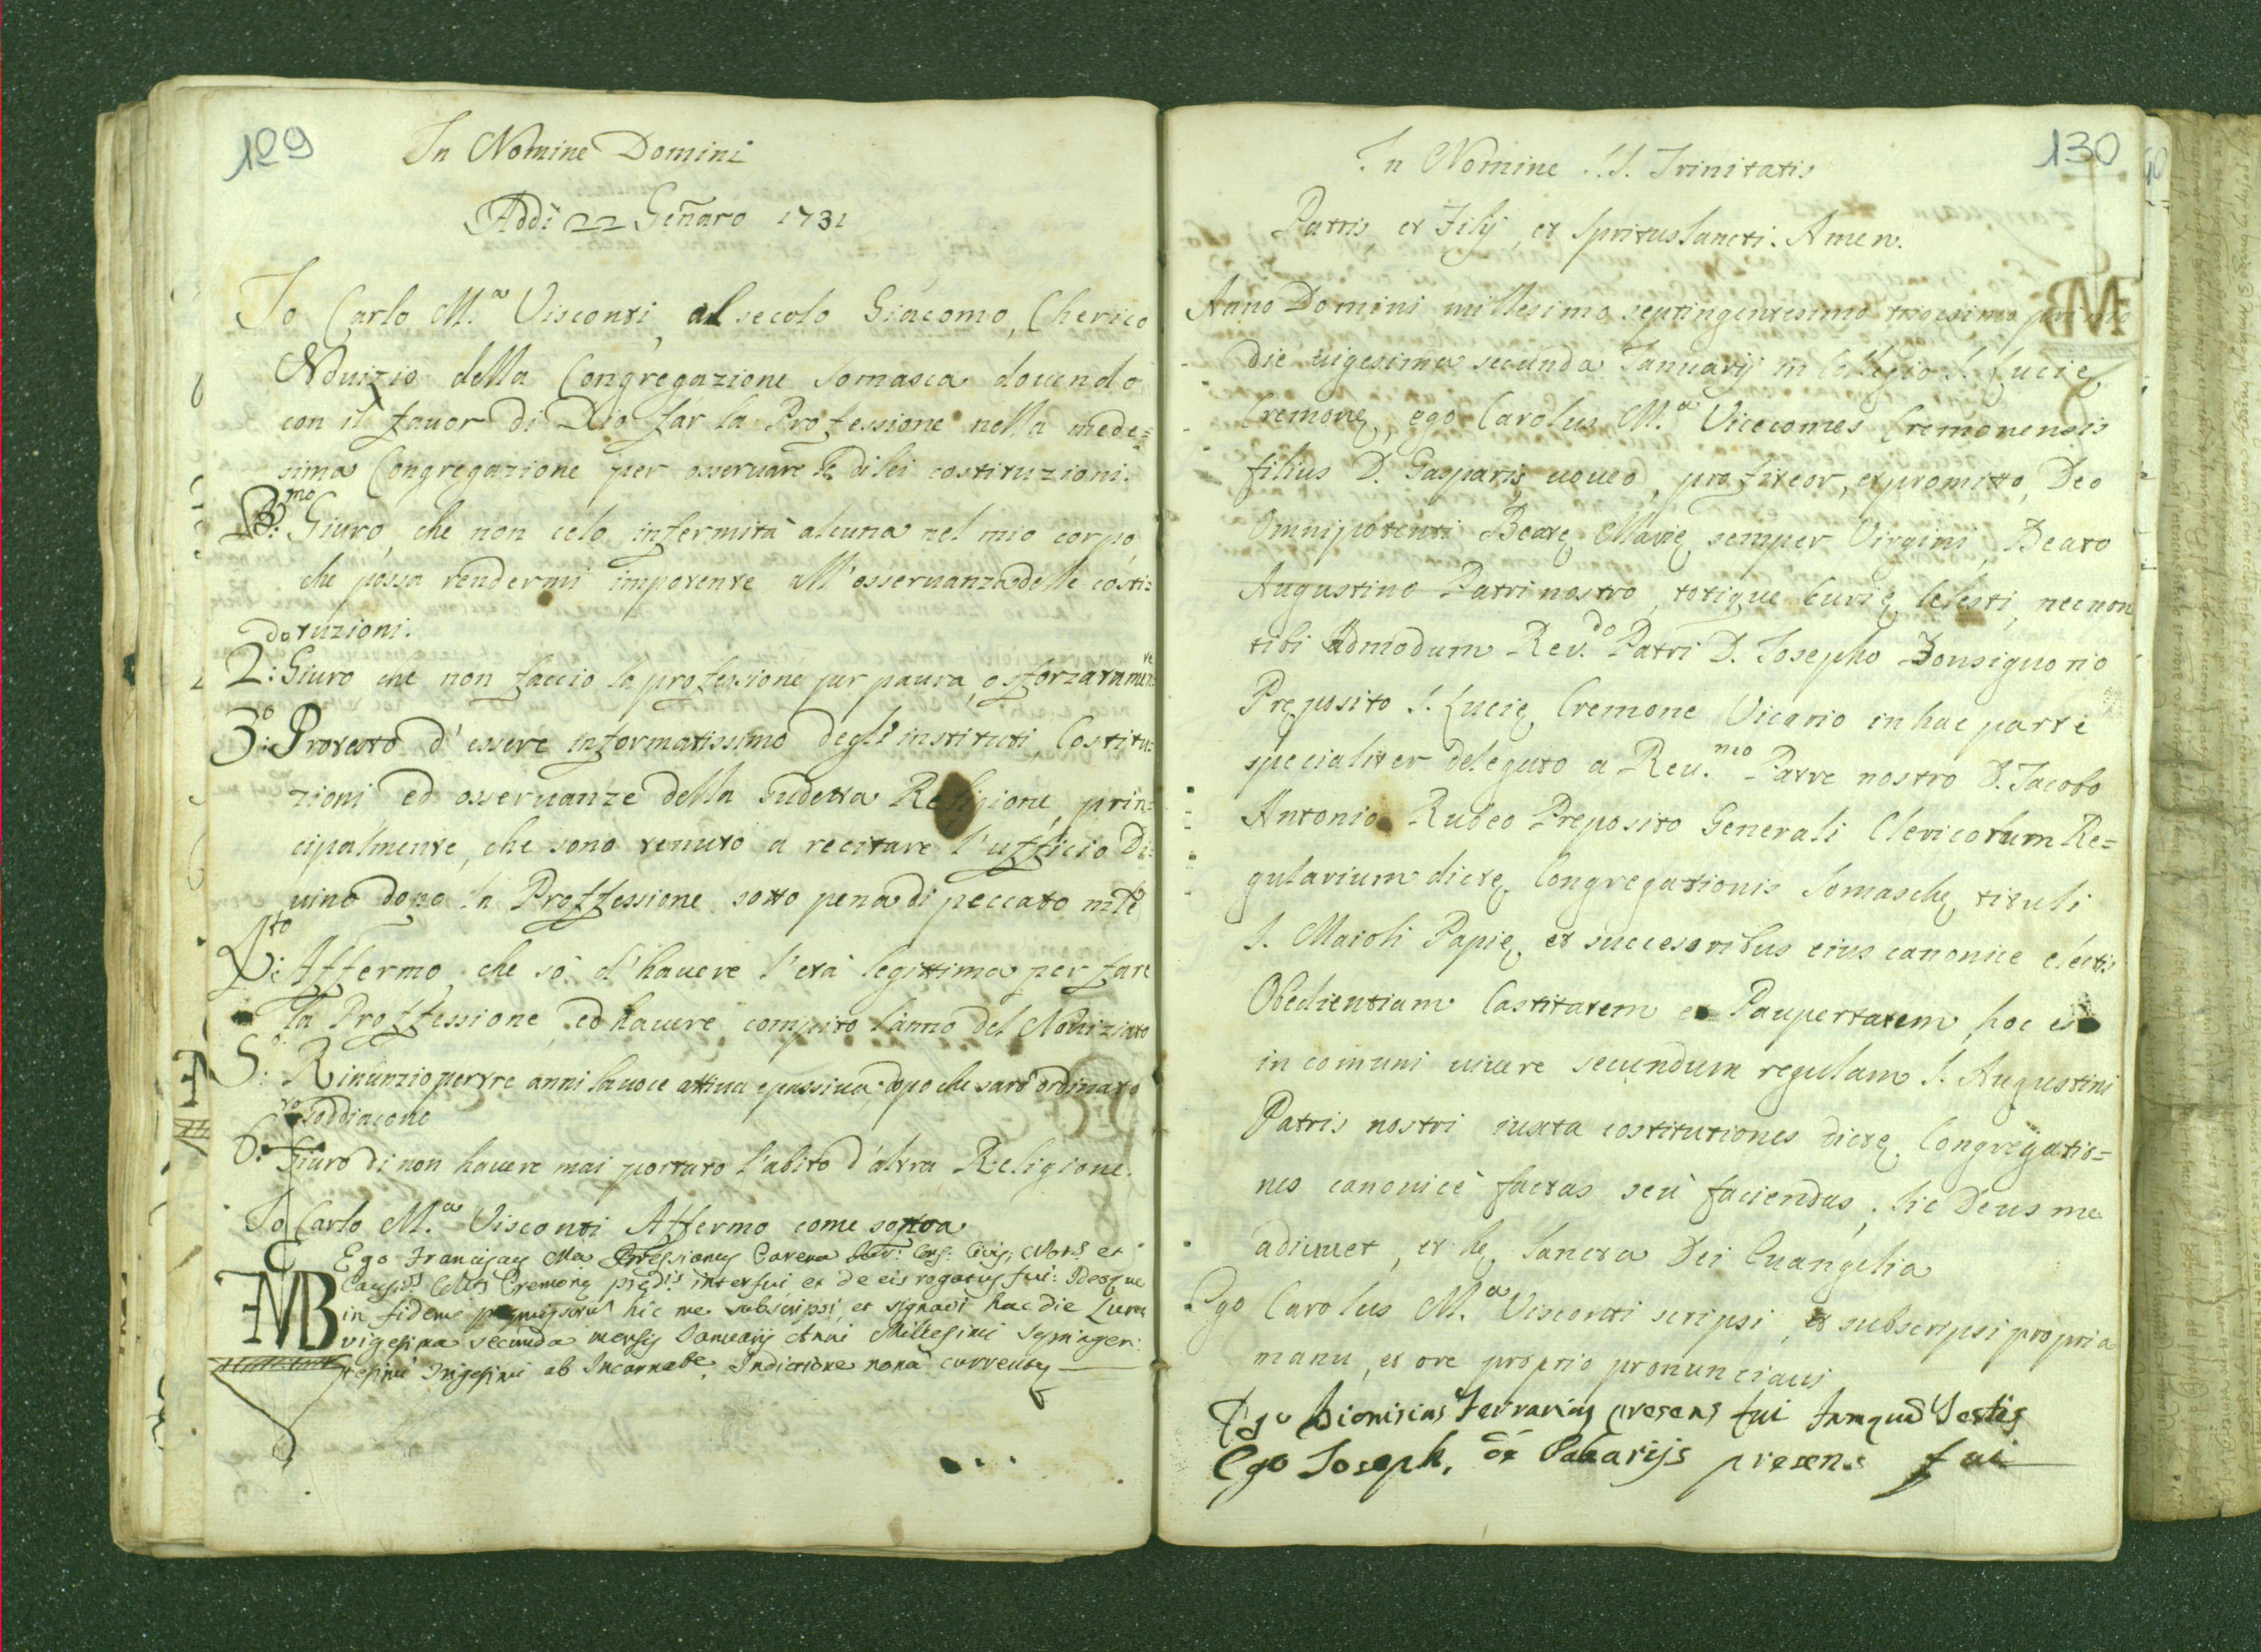 129
In Nomine Domini
Addi 22 Genaro 1731
Io Carlo M.a Visconti, al secolo Giacomo, Cherico
Nouizio della Congregazione Somasca douendo
con il fauor di Dio far la Professione nella mede=
sima Congregazione per osseruare le di lei costituzioni.
P.mo: Giuro, che non celo infermità alcuna nel mio corpo,
che possa rendermi impotente all'osseruanza delle costi=
tuzioni.
2.do: Giuro che non faccio la professione per paura, o sforzatamente
3.o: Protesto d'essere informatissimo degl'instituti, Costitu=
zioni, ed osseruanze della sudetta Religione, prin=
cipalmente, che sono tenuto a recitare l'ufficio Di=
uino dopo la Proffessione sotto pena di peccato mle
4.to: Affermo, che sò d'hauere l'età legittima per fare
la Proffessione, ed hauere compito l'anno del Nouiziato
5.o: Rinunzio per tre anni la uoce attiua e passiua dopo che sarò ordinato
soddiacono
6.to: Giuro di non hauere mai portato l'abito d'altra Religione.
Io Carlo M.a Visconti Affermo come sopra
Ego Franciscus Ma
Cremonę interfui, et de eis rogatus fui: Ideoque
in fidem hic me subscripsi, et signavi hac die Lunę
vigesima secunda mensis Januarij Anni Millesimi Septingen:
tesimi Trigesimi ab Incarnabe, Indictione nona currente
FMB
130
In Nomine S.S. Trinitatis
Patris, et Filij, et Spritus Sancti. Amen.
Anno Domini millesimo septingentesimo trigesimo primo
die uigesima secunda Ianuarij in Collegio S. Lucię
Cremonę, ego Carolus M.a Vicecomes Cremonensis
filius D. Gasparis, uoueo, profiteor, et promitto, Deo
Omnipotenti Beatę Marię semper Virgini, Beato
Augustino Patri nostro, totique Curię Celesti, necnon
tibi Admodum Rev.do Patri D. Iosepho Bonsignorio
Pręposito S. Lucię Cremone Vicario in hac parte
specialiter delegato a Reu.mo Patre nostro D. Jacobo
Antonio Rubeo Preposito Generali Clericorum Re=
gularium dictę Congregationis Somaschę tituli
S. Maioli Papię et succesoribus eius canonice electis
Obedientiam Castitatem et Paupertatem, hoc est
in comuni uiuere secundum regulam S. Augustini
Patris nostri iuxta costitutiones dictę Congregatio=
nis canonicè factas seù faciendas; sic Deus me
adiuuet, et hę Sancta Dei Euangelia
Ego Carolus M.a Visconti scripsi, et subscripsi propria
manu, et ore proprio pronunciaui
Ego Dionisius Ferrarius presens fui tanquã Testis
Ego Joseph, de presens fui